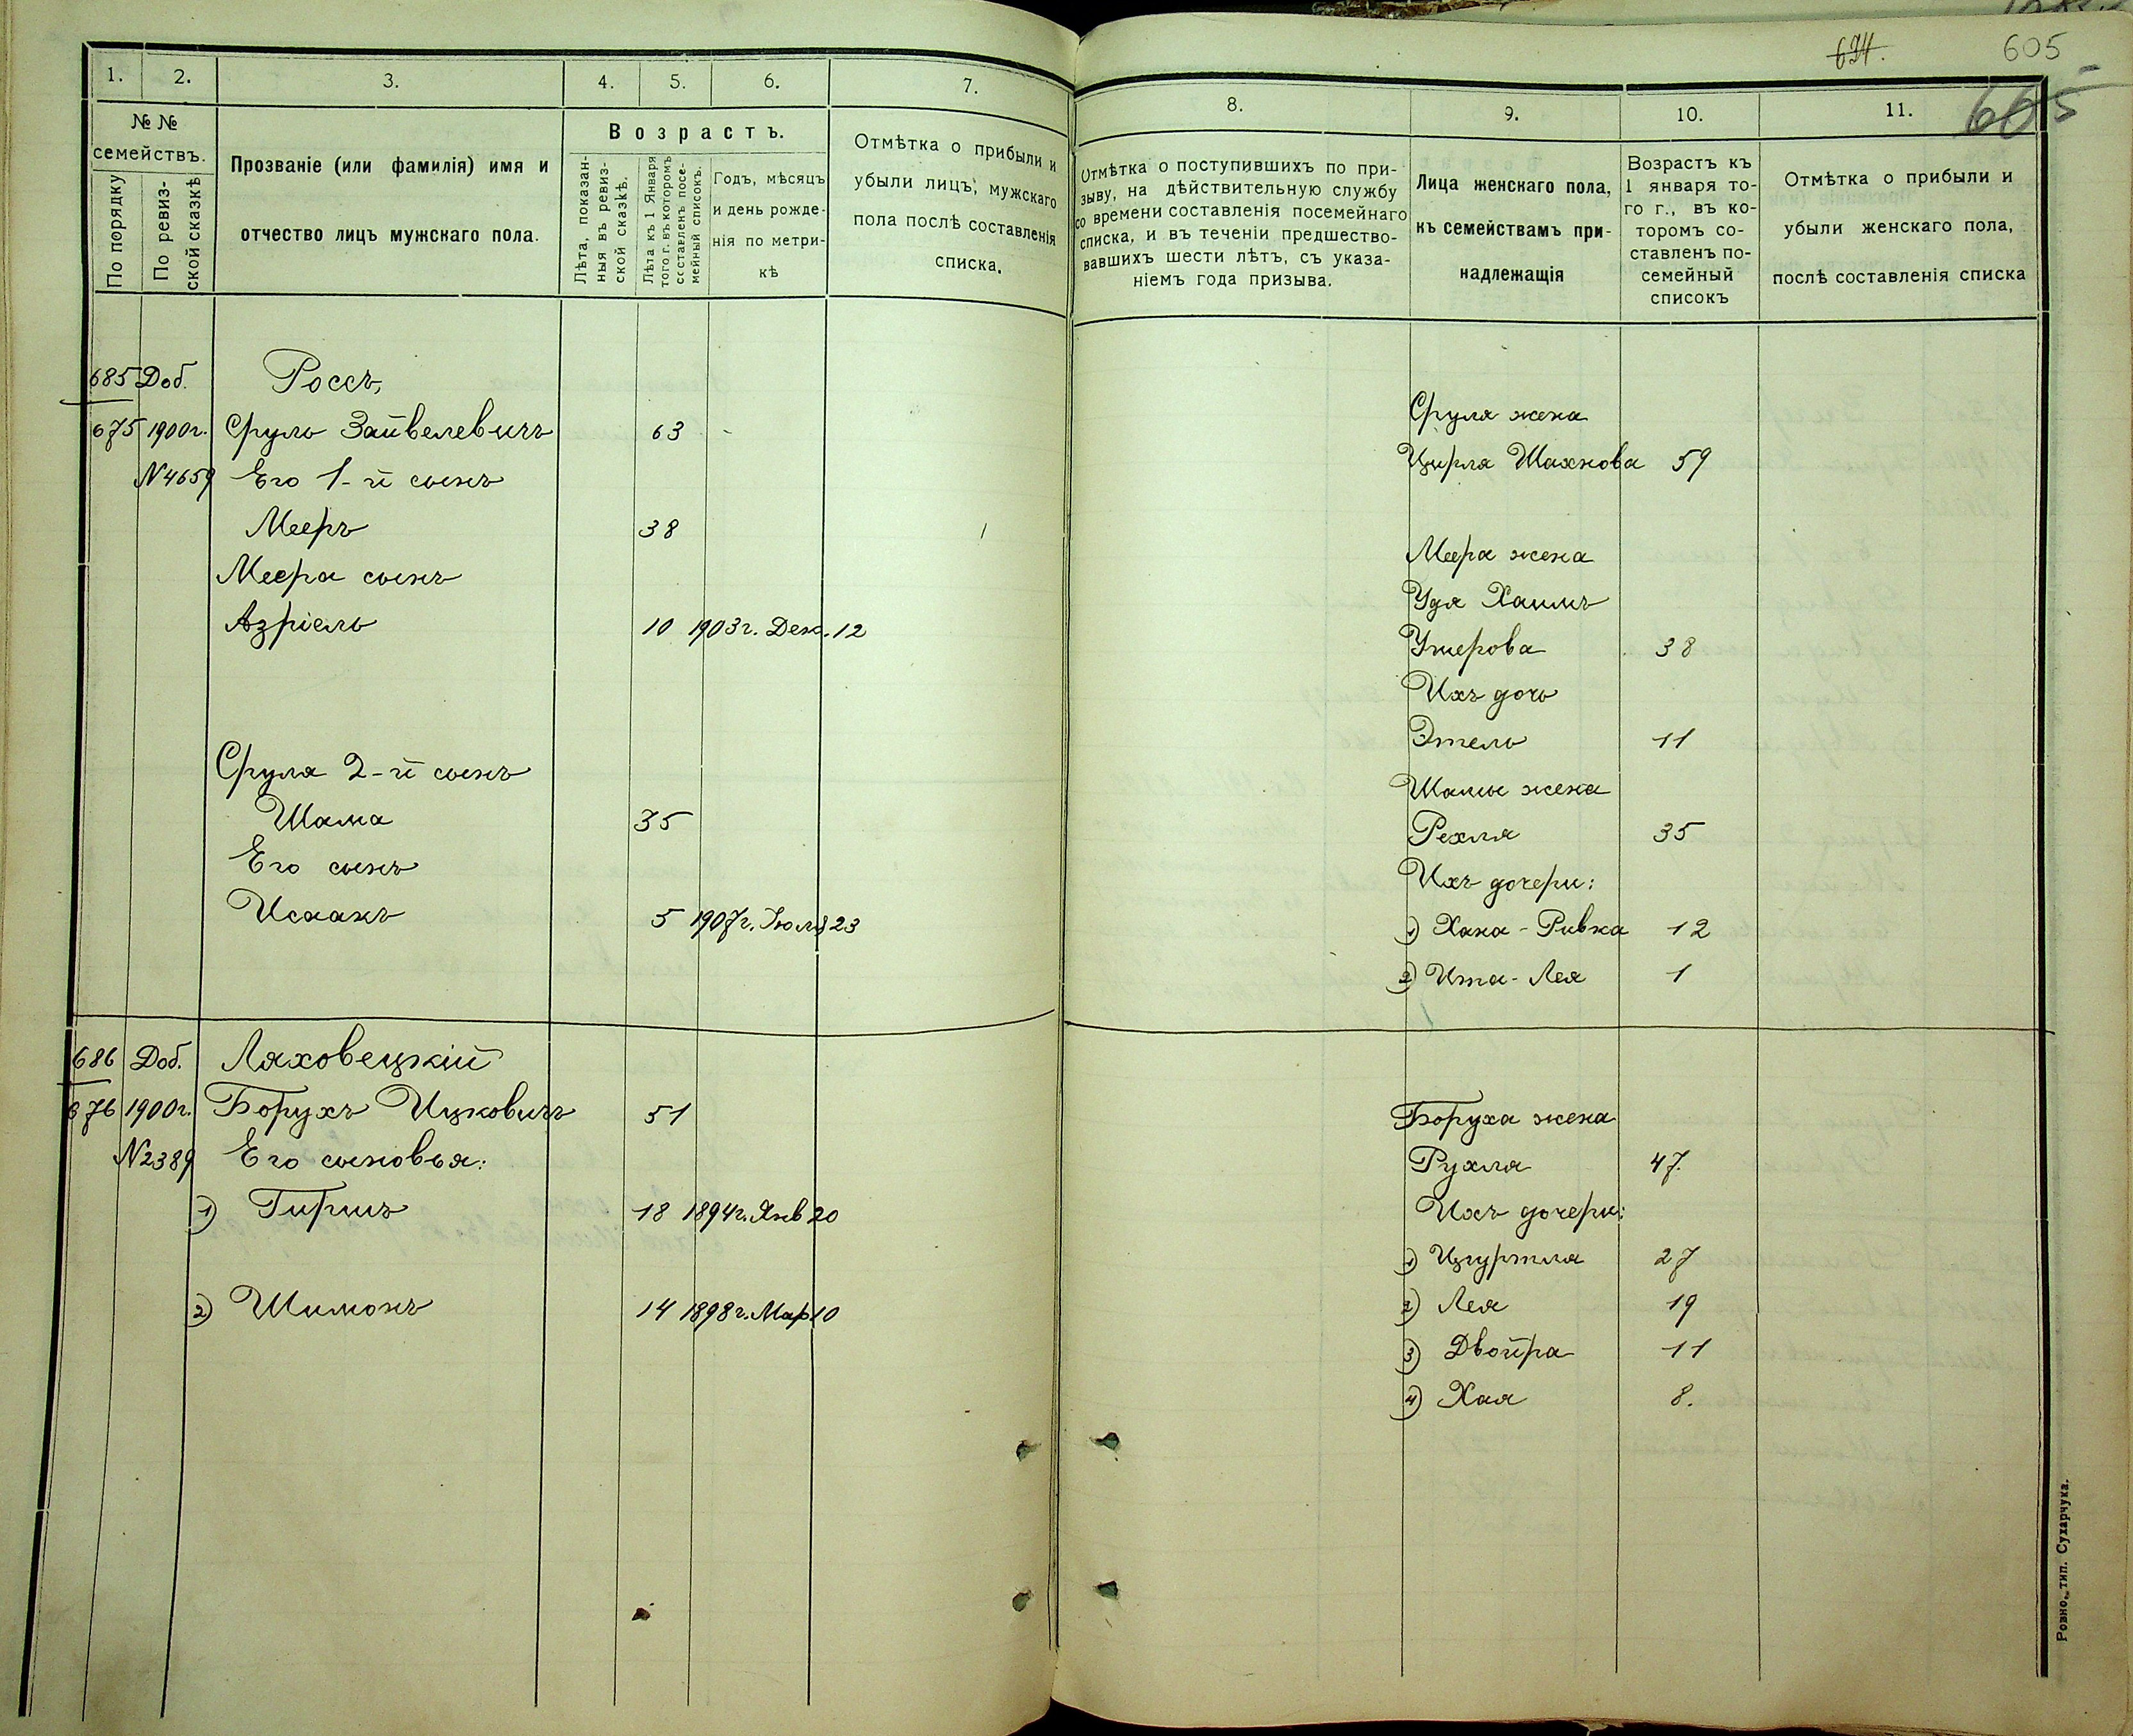 1.
2.
3.
4.
5.
6.
7.
№ №
семействъ.
По порядку
По ревиз-
ской сказкѣ
Прозваніе (или фамилія) имя и
отчество лицъ мужскаго пола.
Возрастъ.
Лѣта, показан-
ныя въ ревиз-
ской сказкѣ.
Лѣта къ 1 Января
того г. въ которомъ
составленъ посе-
мейный списокъ.
Годъ, мѣсяцъ
и день рожде-
нія по метри-
кѣ
Отмѣтка о прибыли и
убыли лицъ, мужскаго
пола послѣ составленія
списка.
685 Доб. Россъ,
675 1900г. Сруль Зайвелевичъ 63
N4659 Его 1-й сынъ
Мееръ 38
Меера сынъ
Азріель 10 1903г. Дек. 12
Сруля 2-й сынъ
Шама 35
Его сынъ
Исаакъ 5 1907г. Іюля 23
686 Доб. Ляховецкій
676 1900г. Борухъ Ицковичъ 51
N2389 Его сыновья:
1) Гиршъ 18 1894г. Янв 20
2) Шимонъ 14 1898г. Мар 10
624.
605
605
8.
9.
10.
11.
Отмѣтка о поступившихъ по при-
зыву, на дѣйствительную службу
со времени составленія посемейнаго
списка, и въ теченіи предшество-
вавшихъ шести лѣтъ, съ указа-
ніемъ года призыва.
Лица женскаго пола,
къ семействамъ при-
надлежащія
Возрастъ къ
1 января то-
го г., въ ко-
торомъ со-
ставленъ по-
семейный
списокъ
Отмѣтка о прибыли и
убыли женскаго пола,
послѣ составленія списка
Сруля жена
Цирля Шахнова 59
Меера жена
Удя Хаимъ
Ушерова 38
Ихъ дочь
Этель 11
Шамы жена
Рехля 35
Ихъ дочери:
1) Хана-Ривка 12
2) Ита-Лея 1
Боруха жена
Рухля 47.
Ихъ дочери:
1) Цуртля 27
2) Лея 19
3) Двойра 11
4) Хая 8.
Ровно, тип. Сухарчука.